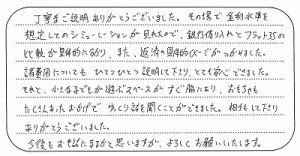 丁寧なご説明ありがとうございました。その場で金利水準を
想定してのシミュレーションが見れたので、銀行借り入れとフラット35の
比較が具体的になり、また、返済の具体的イメージがつかめました。
諸費用についてもひとつひとつ説明して下さり、とても安心できました。
それと、小さな子どもが遊ぶスペースがすぐ脇にあり、おもちゃも
たくさんあったおかげで、ゆっくり話を聞くことができました。相手もして下さり
ありがとうございました。
今後もお世話になるかと思いますが、よろしくお願いいたします。